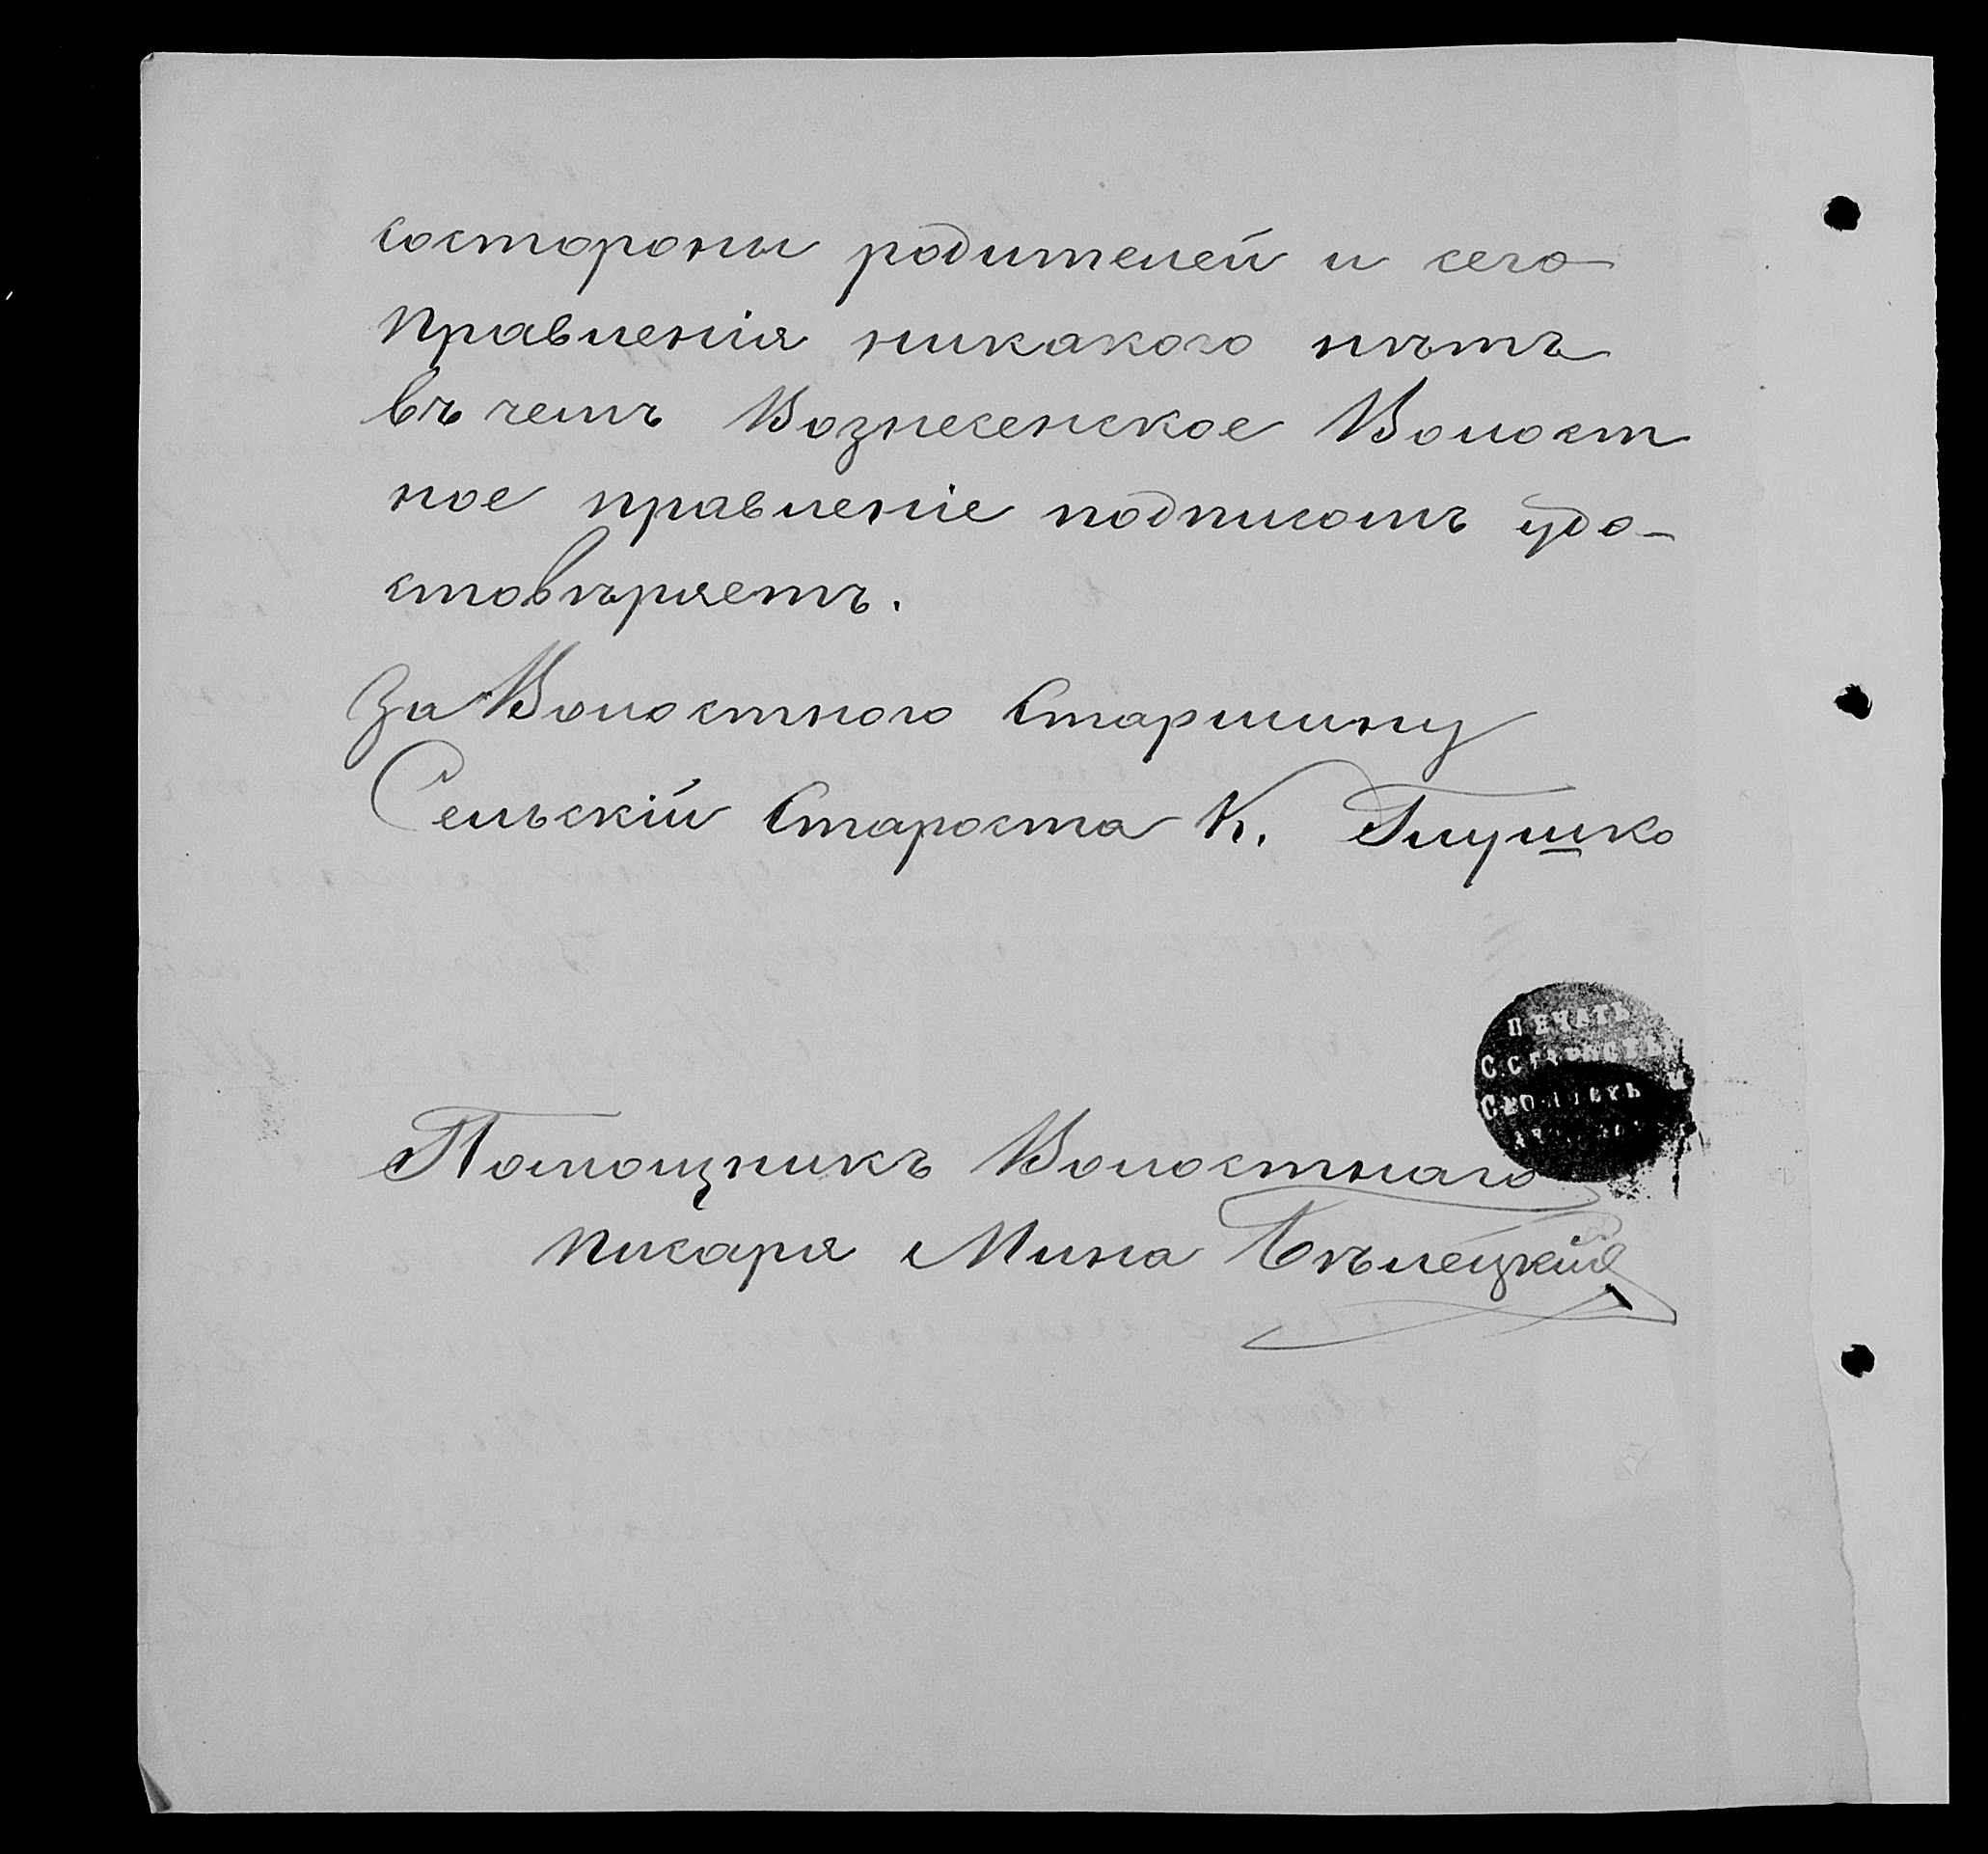 состороны родителей и сего
Правленія никакого нѣтъ
въ чемъ Вознесенское Волост
ное правленіе подписомъ удо-
стовѣряетъ.
За Волостного Старшину
Сельскій Староста К. Глушко
ПЕЧАТЬ
С. СТАРОСТЫ
Помощникъ Волостнаго
писаря Мина Бѣлецкій